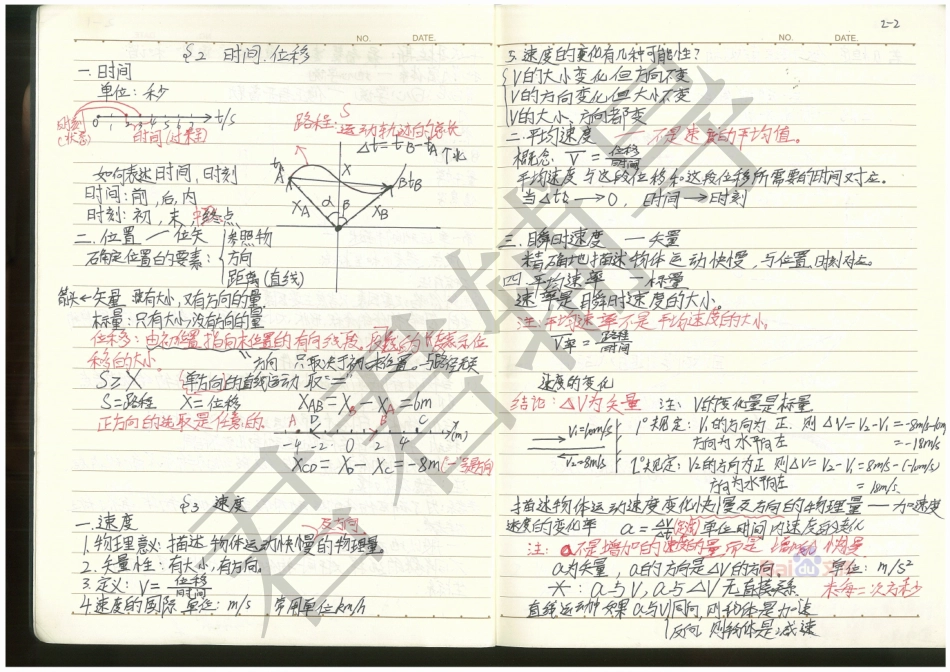 NO.
DATE.
§2 时间.位移
一.时间
单位: 秒
0 1 2 3 4 5 6 t/s
时刻
(状态)
时间(过程)
路程: 运动轨迹的总长
S
Δt = tB - tA
个北
tA
A
X
BtB
如何表述时间, 时刻
XA α β XB
时间: 前, 后, 内
时刻: 初, 末, 终点
二.位置 — 位矢
参照物
确定位置的要素:
方向
距离(直线)
箭头←矢量 既有大小,又有方向的量.
标量: 只有大小没有方向的量
位移: 由初位置指向末位置的有向线段, 线段的长表示位
移的大小.
方向 只取决于初末位置。与路径无关
S≥X
(单方向的直线运动 取"="
S=路程 X=位移
XAB = XB - XA = 6m
正方向的选取是任意的.
A D B C
-4 -2 0 2 4 x(m)
XCD = XD - XC = -8m
§3 速度
一.速度
1.物理意义: 描述物体运动快慢的物理量
2.矢量性: 有大小,有方向.
3.定义: V = 位移/时间
4.速度的国际单位: m/s 常用单位km/h
2-2
NO.
DATE.
5.速度的变化有几种可能性?
V的大小变化但方向不变
V的方向变化但大小不变
V的大小、方向都变
二.平均速度 — 不是速度的平均值。
概念: V̄ = 位移/时间
平均速度与这段位移和这段位移所需要的时间对应.
当Δt→0, 时间→时刻
三.瞬时速度 — 矢量
精确地描述物体运动快慢, 与位置、时刻对应.
四.平均速率 — 标量
速率是瞬时速度的大小.
注:平均速率不是平均速度的大小.
V率 = 路程/时间
速度的变化
结论: ΔV为矢量 注: V的变化量是标量
V1=10m/s
1°规定: V1的方向为正. 则ΔV=V2-V1=-8m/s-10m/s
方向为水平向左 =-18m/s
V2=8m/s
1°规定: V2的方向为正 则ΔV=V2-V1=8m/s-(-10m/s)
方向为水平向左 =18m/s
描述物体运动速度变化快慢及方向的物理量 — 加速度
速度的变化率 a = ΔV/Δt 单位时间内速度的变化
注: a不是增加的速度的量
a为矢量, a的方向是ΔV的方向. 单位: m/s²
*: a与V, a与ΔV无直接关系 米每二次方秒
直线运动中如果a与V同向, 则物体是加速
反向, 则物体是减速
君君辅导